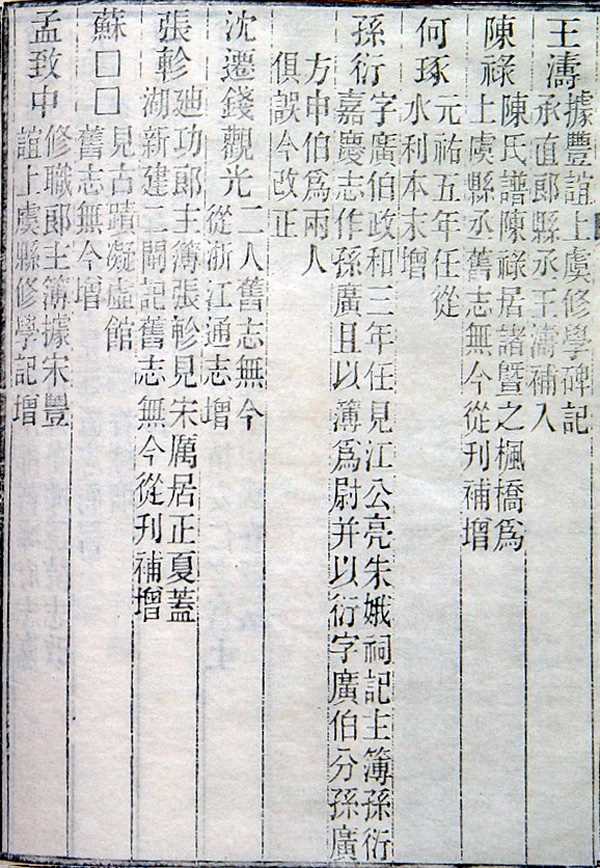 王濤據豐誼上虞修學碑記
承直郎縣丞王濤補入
陳祿陳氏譜陳祿居諸暨之楓橋爲
上虞縣丞舊志無今從刊補增
何琢元祐五年任從
水利本末增
孫衍字廣伯政和三年任見江公亮朱娥祠記主簿孫衍
嘉慶志作孫廣且以簿爲尉并以衍字廣伯分孫廣
方申伯爲兩人
俱誤今改正
沈遷錢觀光二人舊志無今
從浙江通志增
張軫廸功郎主簿張軫見宋厲居正夏蓋
湖新建二閘記舊志無今從刊補增
蘇□□見古蹟凝虛館
舊志無今增
孟致中修職郎主簿據宋豐
誼上虞縣修學記增